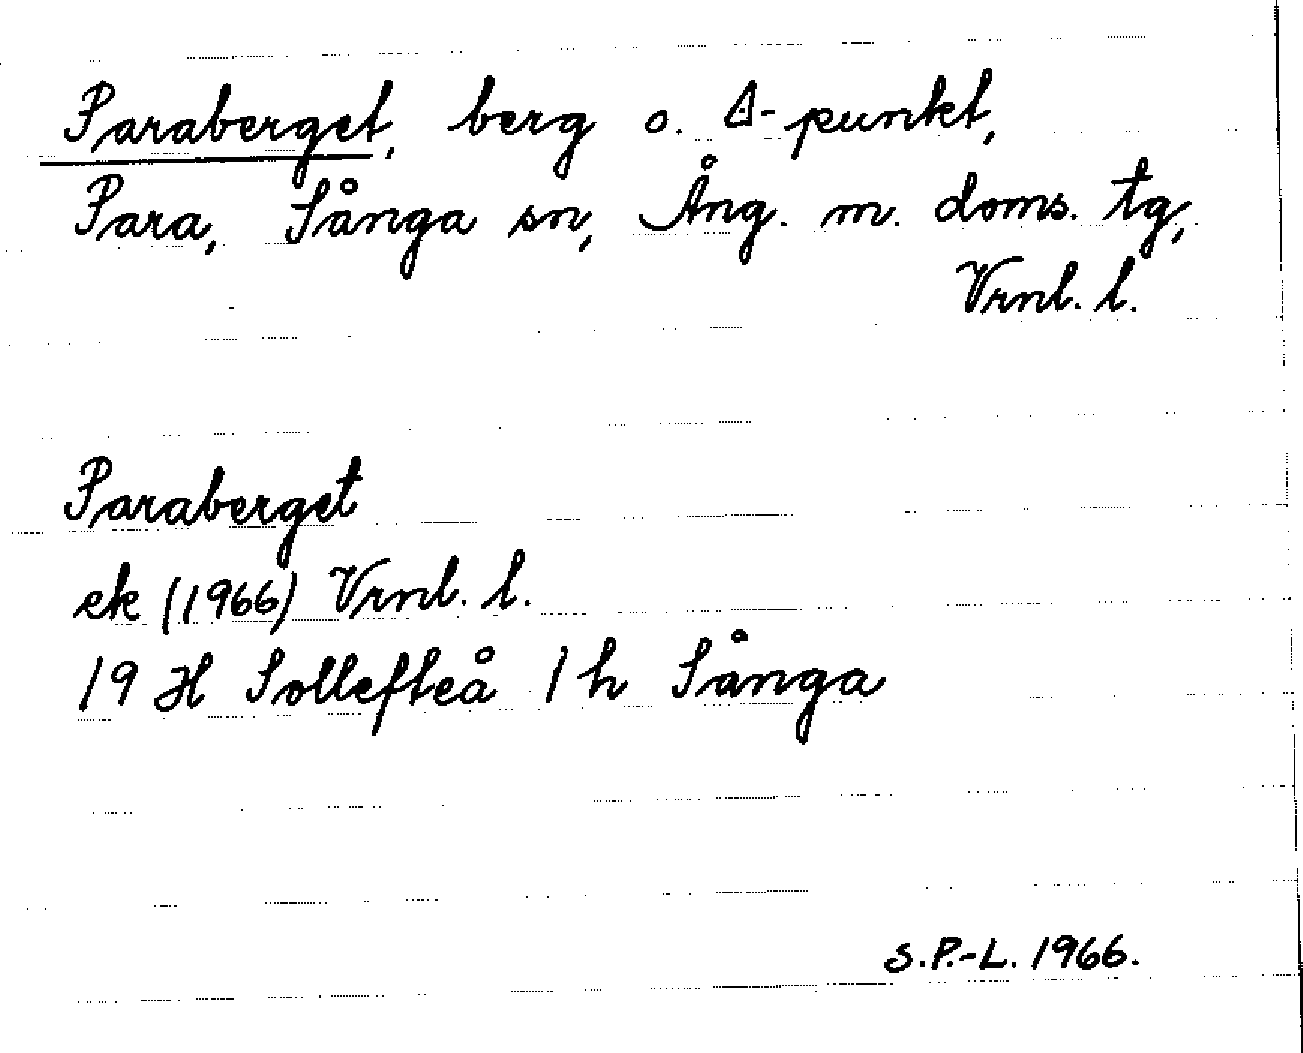 Paraberget, berg o. ∆-punkt,
Para, Sånga sn, Ång. m. doms. tg,
Vrnl. l.
Paraberget
ek (1966) Vrnl. l.
19 H Sollefteå 1 h Sånga
S.P.-L. 1966.